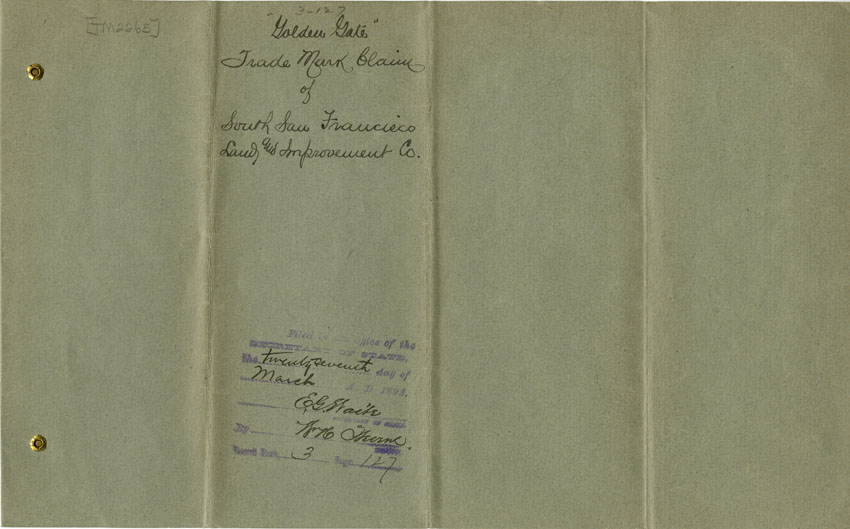 [TM2265]
3-127
"Golden Gate"
Trade Mark Claim
of
South San Francisco
Land and Improvement Co.
Filed in office of the
SECRETARY OF STATE,
the twenty seventh day of
March A. D. 1893,
E.G. Waite
SECRETARY OF STATE.
By W H Thorne.
Record Book, 3 Page 127